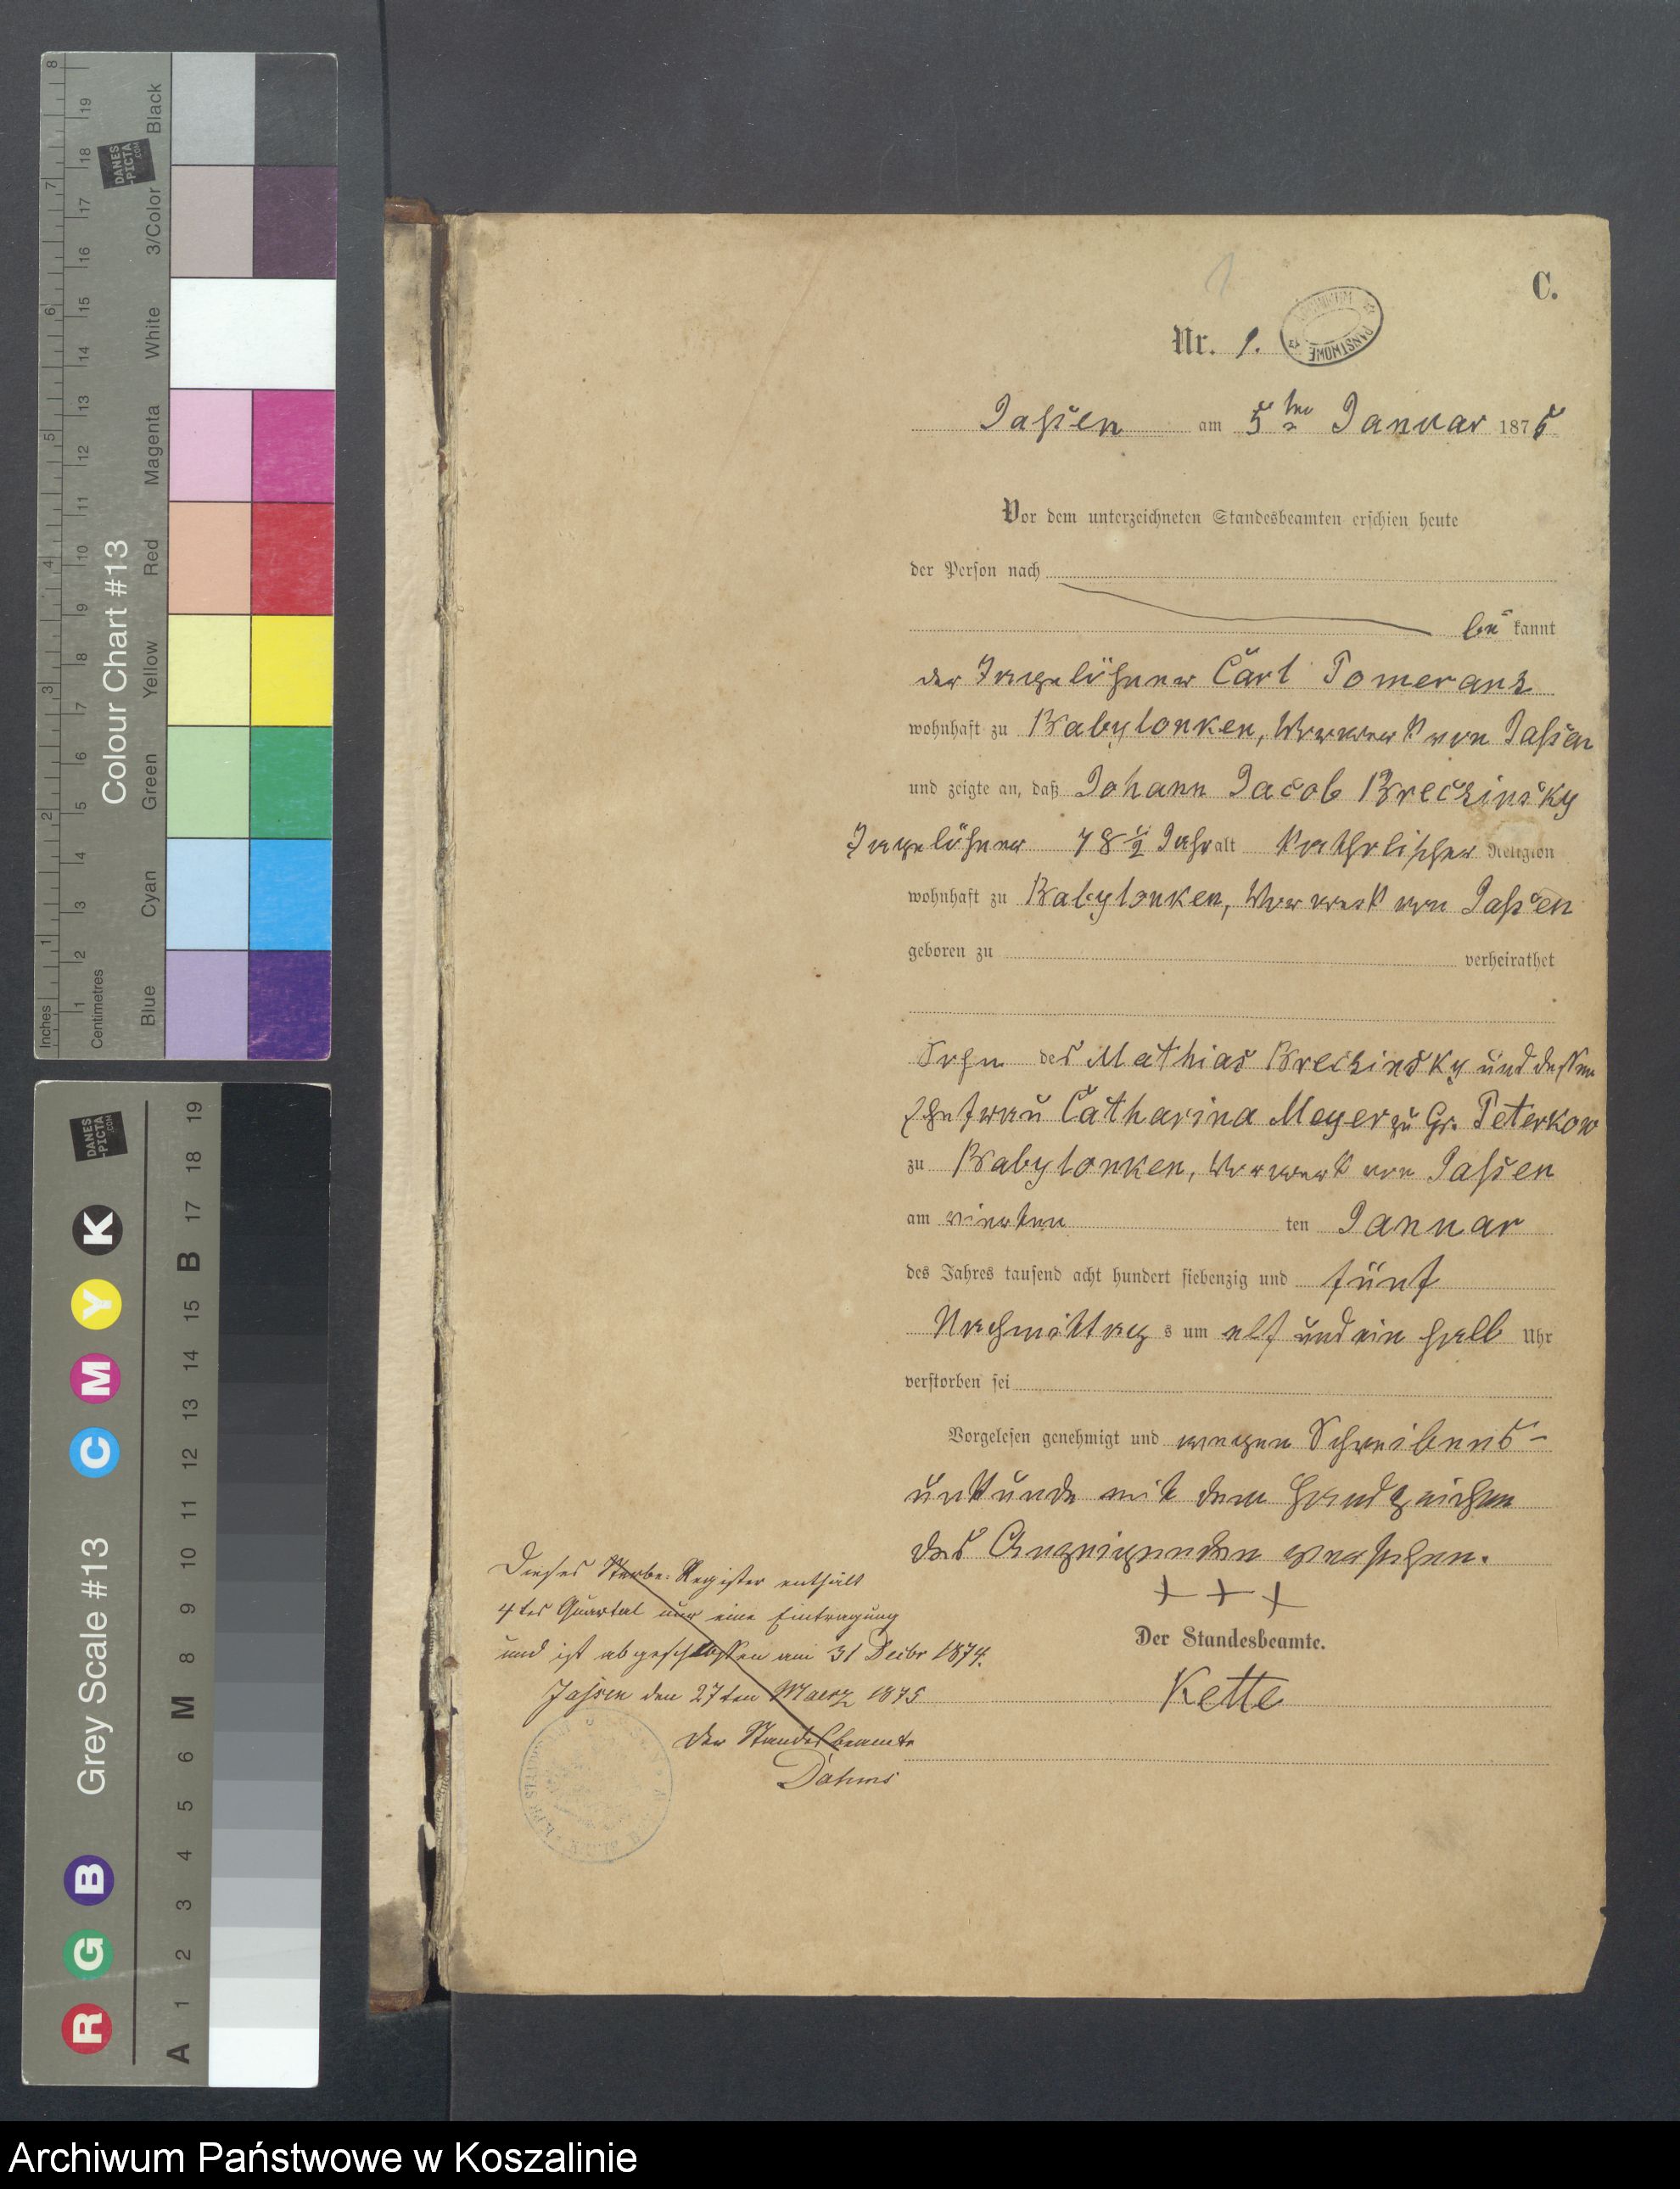 C.
Nr. 1.
Jassen am 5ten Januar 1875
Vor dem unterzeichneten Standesbeamten erschien heute
der Person nach
be kannt
der Tagelöhner Carl Pomeranz
wohnhaft zu Babylonken, Vorwerk von Jassen
und zeigte an, daß Johann Jacob Breczinsky
Tagelöhner 78 1/2 Jahr alt katholischer Religion
wohnhaft zu Babylonken, Vorwerk von Jassen
geboren zu verheirathet
Sohn des Mathias Breczinsky und dessen
Ehefrau Catharina Meyer zu Gr. Peterkow
zu Babylonken, Vorwerk von Jassen
am vierten ten Januar
des Jahres tausend acht hundert siebenzig und fünf
Nachmittag s um elf und ein halb Uhr
verstorben sei
Vorgelesen genehmigt und wegen Schreibens-
unkunde mit dem Handzeichen
des Anzeigenden versehen.
+ + +
Der Standesbeamte.
Kette
Dieses Sterbe-Register enthält
4tes Quartal nur eine Eintragung
und ist abgeschlossen am 31 Decbr 1874.
Jassen den 27ten Maerz 1875
Der Standesbeamte
Dahms
Colour Chart #13
Inches
Centimetres
Blue Cyan Green Yellow Red Magenta White 3/Color Black
DANES
-PICTA
.COM
Grey Scale #13
R G B C M Y K
A 1 2 3 4 5 6 M 8 9 10 11 12 13 14 15 B 17 18 19
Archiwum Państwowe w Koszalinie